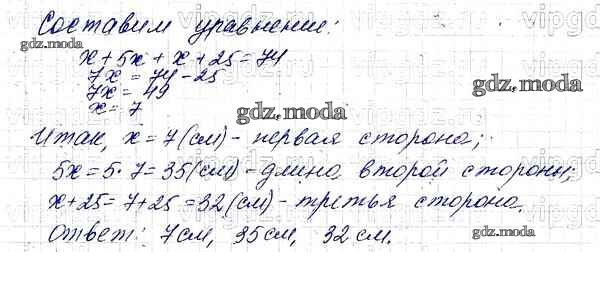 Составим уравнение:
gdz.moda
x + 5x + x + 25 = 74
7x = 74 - 25
7x = 49
x = 7
gdz.moda
gdz.moda
Итак, x = 7 (см) - первая сторона;
5x = 5 · 7 = 35 (см) - длина второй стороны;
x + 25 = 7 + 25 = 32 (см) - третья сторона.
Ответ: 7 см, 35 см, 32 см.
gdz.moda